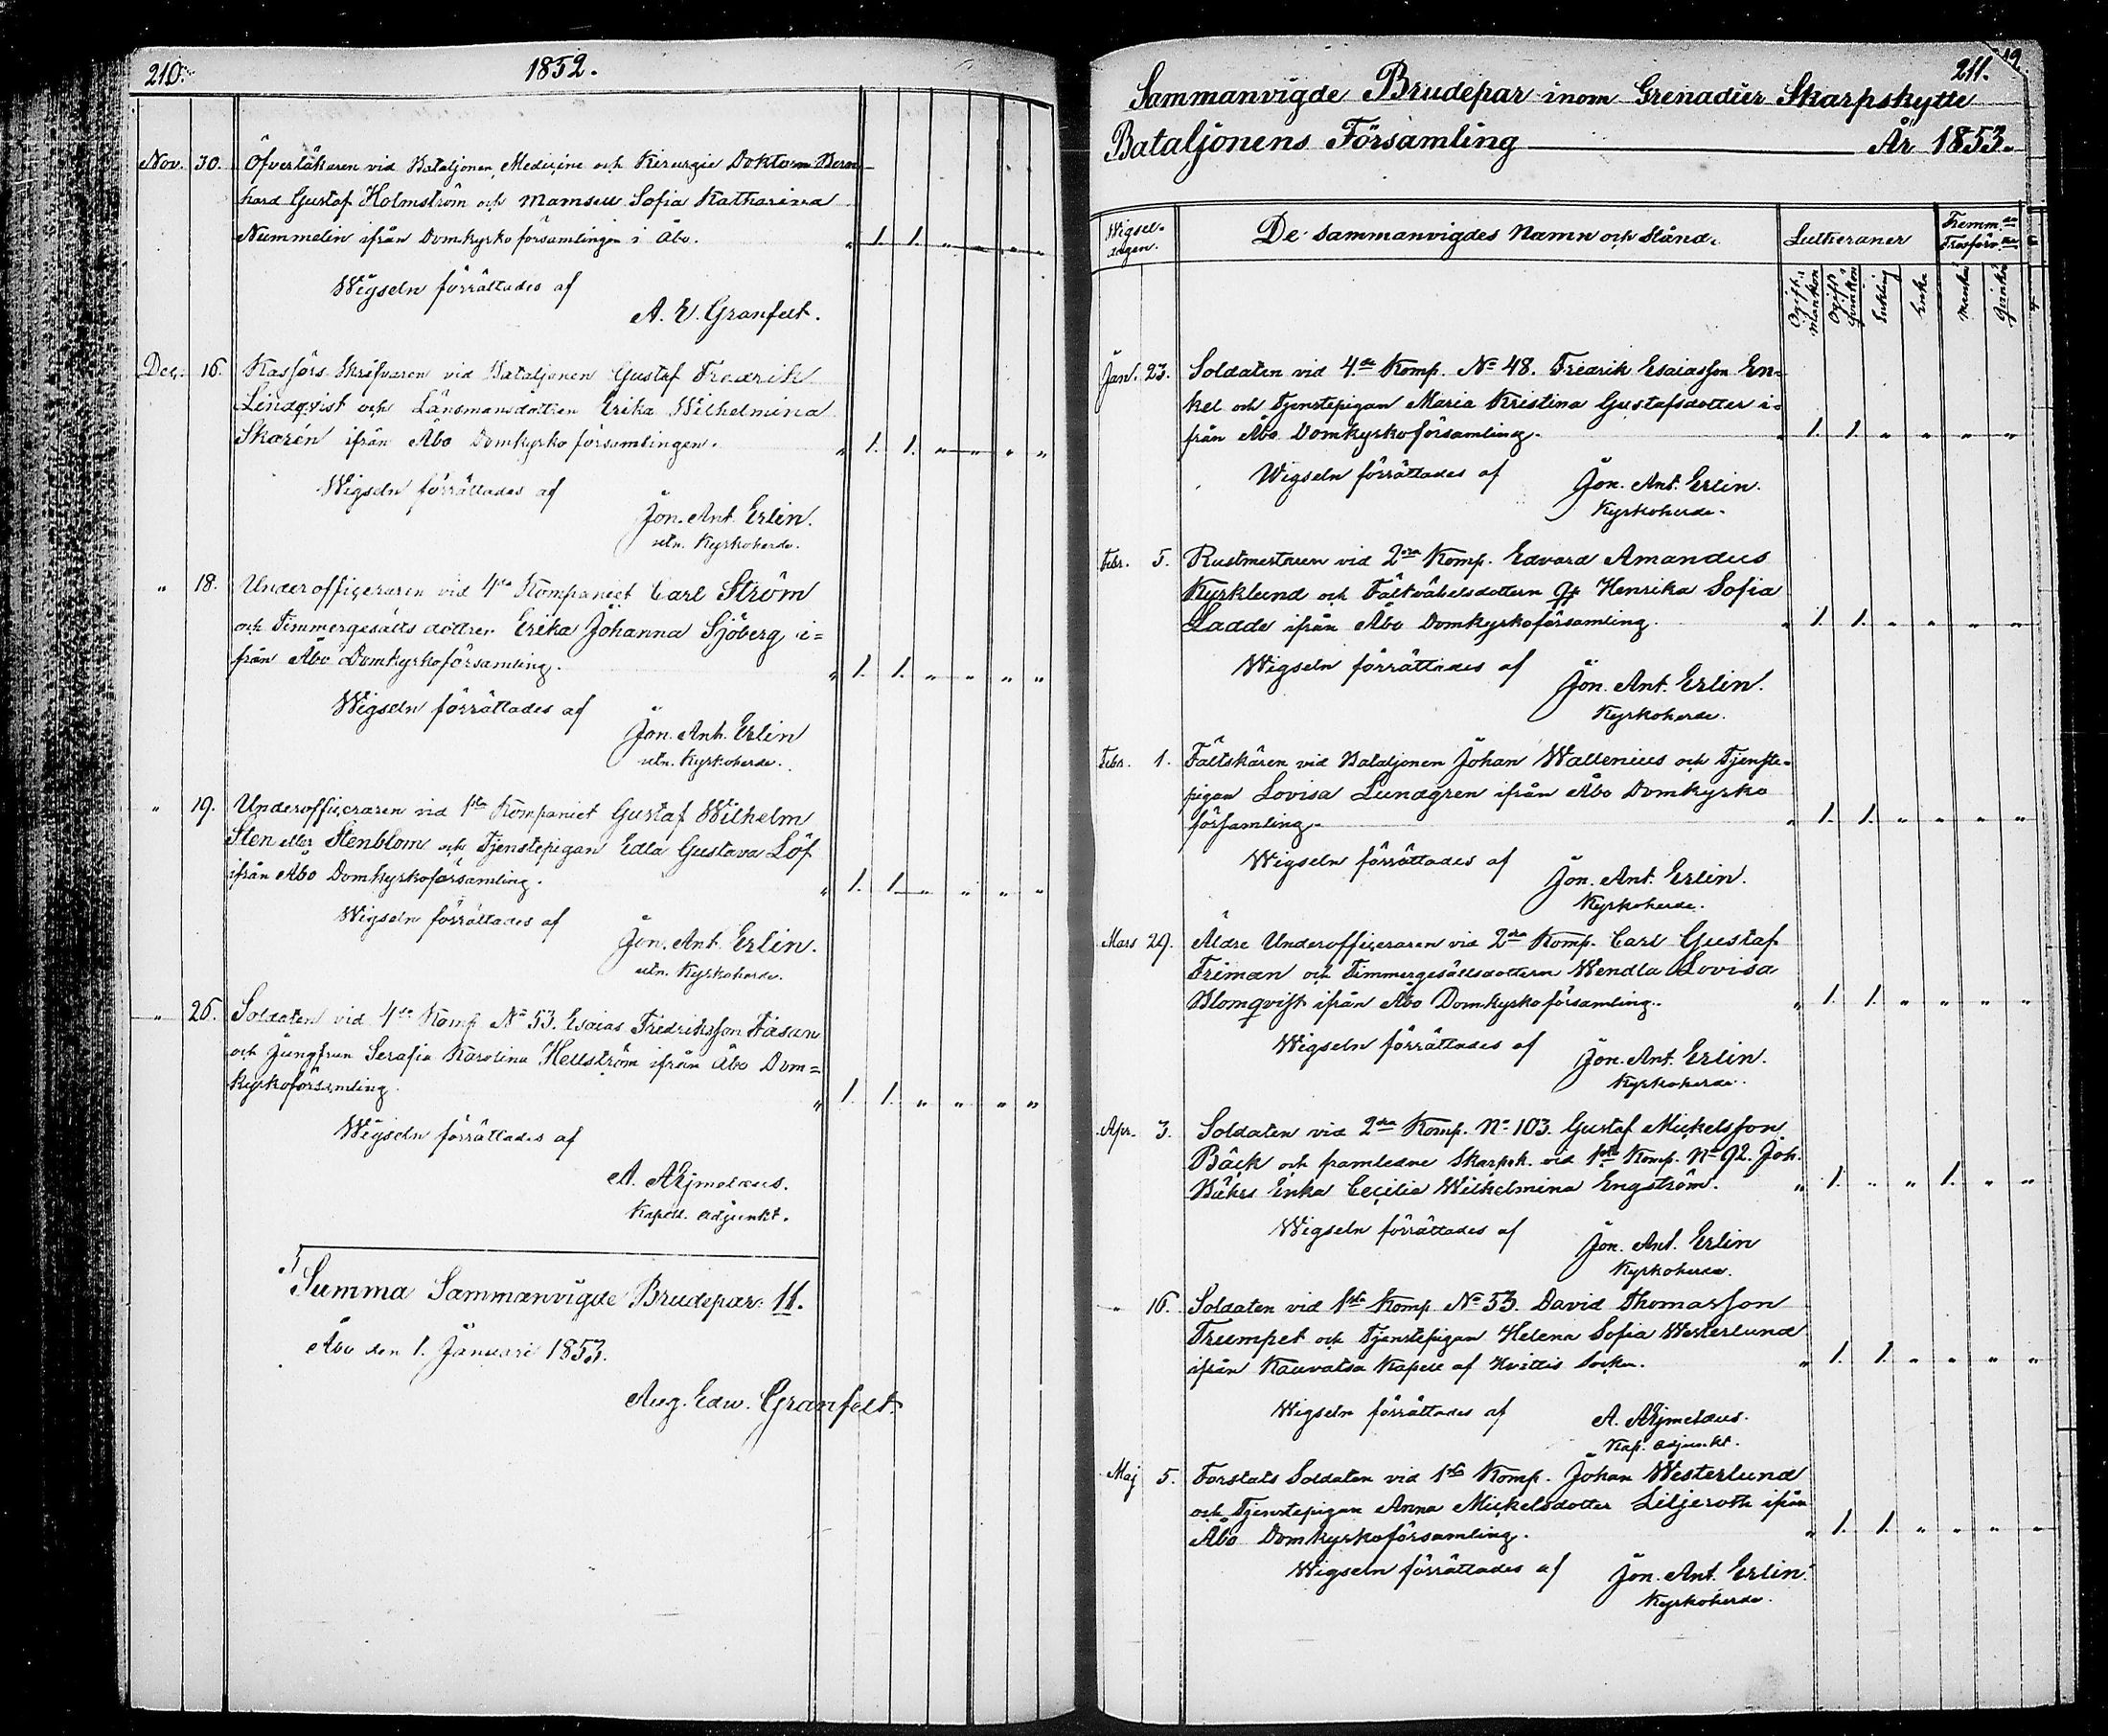 210.
1852.
Nov. 30. Öfverläkaren vid Bataljonen, Medicine och Kirurgie Doktorn Bern-
hard Gustaf Holmström och Mamsell Sofia Katharina
Nummelin ifrån Domkyrko församlingen i Åbo. " 1. 1. " " " "
Wigseln förrättades af
A. E. Granfelt.
Dec. 16. Kassörs Skrifvaren vid Bataljonen Gustaf Fredrik
Lindqvist och Länsmansdottren Erika Wilhelmina
Skarén ifrån Åbo Domkyrko församlingen. " 1. 1. " " " "
Wigseln förrättades af
Jon. Ant. Erlin.
utn. Kyrkoherde.
" 18. Underofficeraren vid 4de Kompaniet Carl Ström
och Timmergesälls dottren Erika Johanna Sjöberg i=
från Åbo Domkyrkoförsamling. " 1. 1. " " " "
Wigseln förrättades af
Jon. Ant. Erlin
utn. Kyrkoherde.
" 19. Underofficeraren vid 1sta Kompaniet Gustaf Wilhelm
Sten eller Stenblom och Tjenstepigan Edla Gustava Löf
ifrån Åbo Domkyrkoförsamling. " 1. 1. " " " "
Wigseln förrättades af
Jon. Ant. Erlin.
utn. Kyrkoherde.
" 26. Soldaten vid 4de Komp. No 53. Esaias Fredriksson Fasan
och Jungfrun Serafia Karolina Hellström ifrån Åbo Dom=
kyrkoförsamling. " 1. 1. " " " "
Wigseln förrättades af
A. Arjmelæus.
Kapell. adjunkt.
Summa Sammanvigde Brudepar 11.
Åbo den 1. Januari 1853.
Aug. Edw. Granfelt.
211.
Sammanvigde Brudepar inom Grenadier Skarpskytte
Bataljonens Församling År 1853.
Wigsel-
dagen. De sammanvigdes Namn och stånd. Lutheraner Fremm.de
Trosförv.
Ogift Mankön Ogift Qvinkön Enkling Enka Mankön Qvinkön
Jan. 23. Soldaten vid 4de Komp. No 48. Fredrik Esaiasson En-
kel och Tjenstepigan Maria Kristina Gustafsdotter i-
från Åbo Domkyrkoförsamling. " 1. 1. " " " "
Wigseln förrättades af
Jon. Ant. Erlin.
Kyrkoherde.
Febr. 5. Rustmestaren vid 2dra Komp. Edvard Amandus
Kyrklund och Fältväbelsdottern Henrika Sofia
Ladde ifrån Åbo Domkyrkoförsamling. " 1. 1. " " " "
Wigseln förrättades af
Jon. Ant. Erlin.
Kyrkoherde.
Febr. 1. Fältskären vid Bataljonen Johan Wallenius och Tjenste-
pigan Lovisa Lundgren ifrån Åbo Domkyrko
församling. " 1. 1. " " " "
Wigseln förrättades af
Jon. Ant. Erlin.
Kyrkoherde.
Mars 29. Äldre Underofficeraren vid 2dra Komp. Carl Gustaf
Friman och Timmergesällsdottern Wendla Lovisa
Blomqvist ifrån Åbo Domkyrkoförsamling. " 1. 1. " " " "
Wigseln förrättades af
Jon. Ant. Erlin.
Kyrkoherde.
Apr. 3. Soldaten vid 2dra Komp. No 103. Gustaf Mickelsson
Bäck och framledne Skarpsk. vid 1sta Komp. No 92. Joh.
Enka Cecilia Wilhelmina Engström. " 1. " " 1. " "
Wigseln förrättades af
Jon. Ant. Erlin
Kyrkoherde.
" 16. Soldaten vid 1sta Komp. No 53. David Thomasson
Trumpet och Tjenstepigan Helena Sofia Westerlund
ifrån Kauvatsa Kapell af Hvittis Socken. " 1. 1. " " " "
Wigseln förrättades af
A. Arjmelæus.
Kap. adjunkt.
Maj 5. Forstats Soldaten vid 1sta Komp. Johan Westerlund
och Tjenstepigan Anna Mickelsdotter Liljeroth ifrån
Åbo Domkyrkoförsamling. " 1. 1. " " " "
Wigseln förrättades af
Jon. Ant. Erlin.
Kyrkoherde.